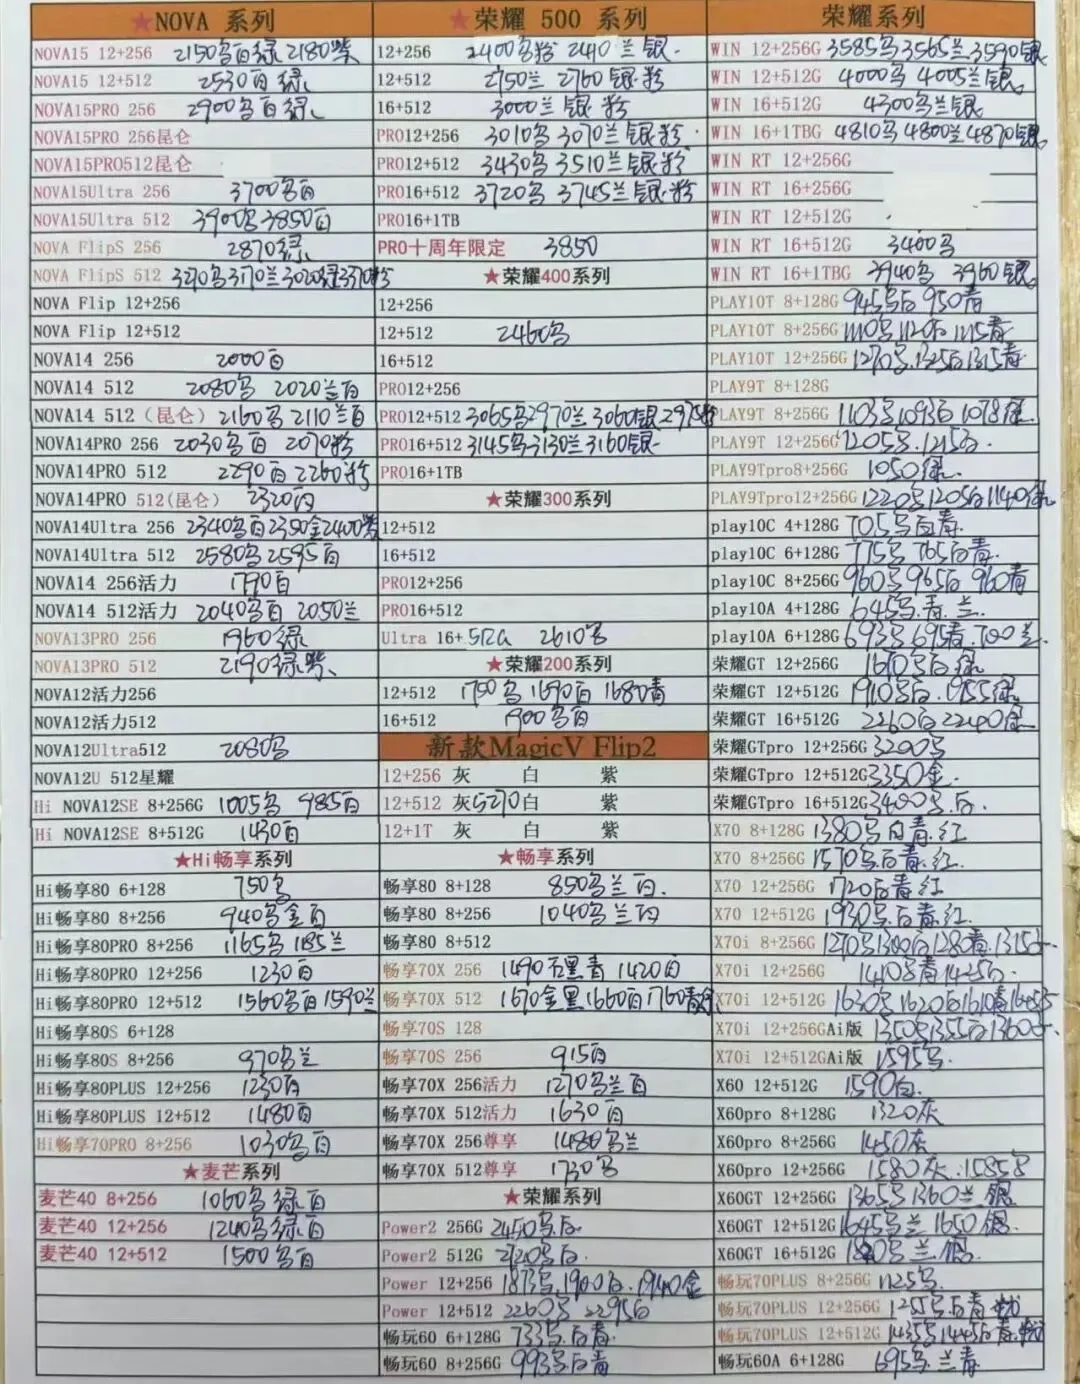 ★NOVA 系列
NOVA15 12+256 2150乌白绿 2180紫
NOVA15 12+512 2530百绿
NOVA15PRO 256 2900乌白绿
NOVA15PRO 256昆仑
NOVA15PRO512昆仑
NOVA15Ultra 256 3700乌百
NOVA15Ultra 512 3900乌 3850百
NOVA FlipS 256 2870绿
NOVA FlipS 512
NOVA Flip 12+256
NOVA Flip 12+512
NOVA14 256 2000百
NOVA14 512 2080乌 2020兰百
NOVA14 512（昆仑）2160乌 2110兰百
NOVA14PRO 256 2030乌百 2070粉
NOVA14PRO 512 2290百 2260粉
NOVA14PRO 512(昆仑) 2320百
NOVA14Ultra 256 2340乌百2350金2400紫
NOVA14Ultra 512 2580乌 2595百
NOVA14 256活力 1790百
NOVA14 512活力 2040乌百 2050兰
NOVA13PRO 256 1960绿
NOVA13PRO 512 2190绿紫
NOVA12活力256
NOVA12活力512
NOVA12Ultra512 2080乌
NOVA12U 512星耀
Hi NOVA12SE 8+256G 1005乌 985百
Hi NOVA12SE 8+512G 1430百
★Hi畅享系列
Hi畅享80 6+128 750乌
Hi畅享80 8+256 940乌金百
Hi畅享80PRO 8+256 1165乌 1185兰
Hi畅享80PRO 12+256 1230百
Hi畅享80PRO 12+512 1560乌百1590兰
Hi畅享80S 6+128
Hi畅享80S 8+256 970乌兰
Hi畅享80PLUS 12+256 1230百
Hi畅享80PLUS 12+512 1480百
Hi畅享70PRO 8+256 1030乌百
★麦芒系列
麦芒40 8+256 1060乌绿百
麦芒40 12+256 1240乌绿百
麦芒40 12+512 1500乌百
★荣耀 500 系列
12+256 2400乌粉 2440兰银
12+512 2750兰 2760银粉
16+512 3000兰银粉
PRO12+256 3010乌 3070兰银粉
PRO12+512 3430乌 3510兰银粉
PRO16+512 3720乌 3745兰银粉
PRO16+1TB
PRO十周年限定 3850
★荣耀400系列
12+256
12+512 2460乌
16+512
PRO12+256
PRO12+512 3065乌2970兰3060银2975粉
PRO16+512 3145乌3130兰3160银
PRO16+1TB
★荣耀300系列
12+512
16+512
PRO12+256
PRO16+512
Ultra 16+512G 2610乌
★荣耀200系列
12+512 1750乌 1690百 1680青
16+512 1900乌百
新款MagicV Flip2
12+256 灰 白 紫
12+512 灰5270白 紫
12+1T 灰 白 紫
★畅享系列
畅享80 8+128 850乌兰百
畅享80 8+256 1040乌兰百
畅享80 8+512
畅享70X 256 1490 黑青 1420百
畅享70X 512 1670金黑1660百1760青
畅享70S 128
畅享70S 256 915百
畅享70X 256活力 1270乌兰百
畅享70X 512活力 1630百
畅享70X 256尊享 1480乌兰
畅享70X 512尊享 1730乌
★荣耀系列
Power2 256G 2450乌白
Power2 512G 2720乌白
Power 12+256 1873乌1900白1940金
Power 12+512 2260乌 2295白
畅玩60 6+128G 733乌白青
畅玩60 8+256G 993乌白青
荣耀系列
WIN 12+256G 3585乌3565兰3590银
WIN 12+512G 4000乌 4005兰银
WIN 16+512G 4300乌兰银
WIN 16+1TBG 4810乌4800兰4870银
WIN RT 12+256G
WIN RT 16+256G
WIN RT 12+512G
WIN RT 16+512G 3400乌
WIN RT 16+1TBG 3940乌 3960银
PLAY10T 8+128G 945乌白 950青
PLAY10T 8+256G 1110乌1120白1115青
PLAY10T 12+256G 1270乌1325白1315青
PLAY9T 8+128G
PLAY9T 8+256G 1103乌1093白1078绿
PLAY9T 12+256G 1205乌1215白
PLAY9Tpro8+256G 1050绿
PLAY9Tpro12+256G 1220乌1205白1140绿
play10C 4+128G 705乌白青
play10C 6+128G 775乌 765白青
play10C 8+256G 960乌 965白 960青
play10A 4+128G 645乌青兰
play10A 6+128G 693乌695青700兰
荣耀GT 12+256G 1670乌白绿
荣耀GT 12+512G 1910乌白1955绿
荣耀GT 16+512G 2260白2240绿
荣耀GTpro 12+256G 3200乌
荣耀GTpro 12+512G 3350金
荣耀GTpro 16+512G 3400乌白
X70 8+128G 1380乌白青红
X70 8+256G 1570乌白青红
X70 12+256G 1720白青红
X70 12+512G 1930乌白青红
X70i 8+256G 1270乌1300白1280青
X70i 12+256G 1410乌青1425白
X70i 12+512G 1630乌1620白1610青
X70i 12+256GAi版 1350乌1355白1360
X70i 12+512GAi版 1595乌
X60 12+512G 1590白
X60pro 8+128G 1320灰
X60pro 8+256G 1450灰
X60pro 12+256G 1580灰 1585乌
X60GT 12+256G 1365乌1360兰银
X60GT 12+512G 1645乌兰 1650银
X60GT 16+512G 兰银
畅玩70PLUS 8+256G 1125乌
畅玩70PLUS 12+256G 1255乌白青
畅玩70PLUS 12+512G 1435乌1445白青
畅玩60A 6+128G 695乌兰青